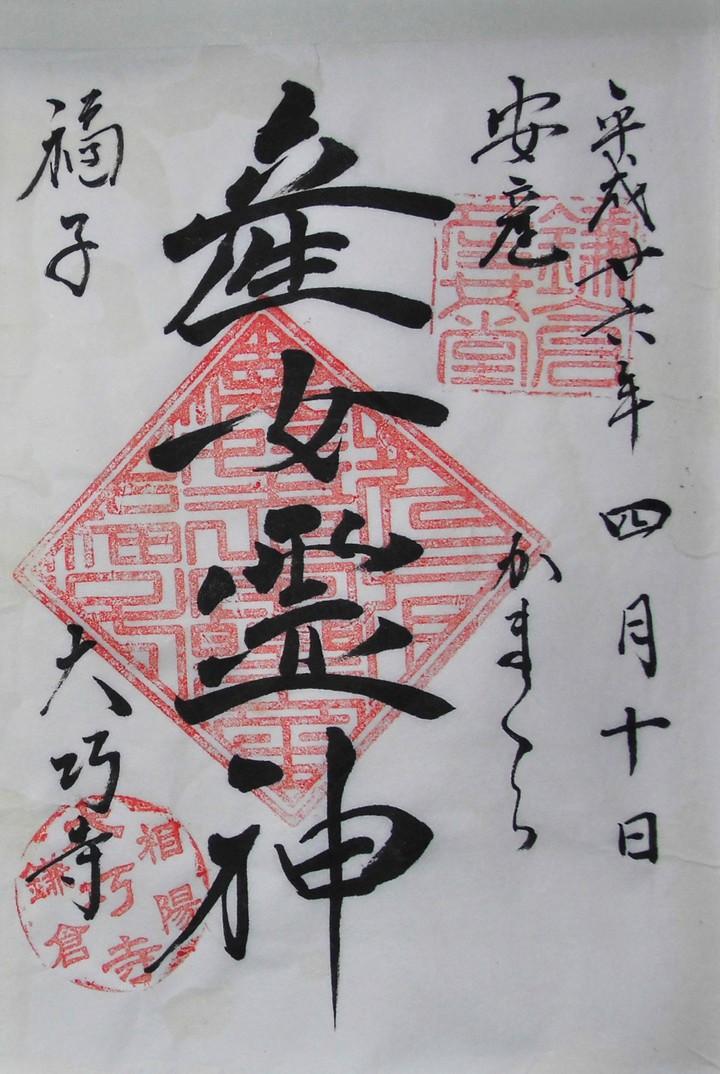 平成廿六年 四月十日
安産 かまくら
産女霊神
福子 大巧寺
鎌倉
産女堂
相陽
鎌倉
大巧寺